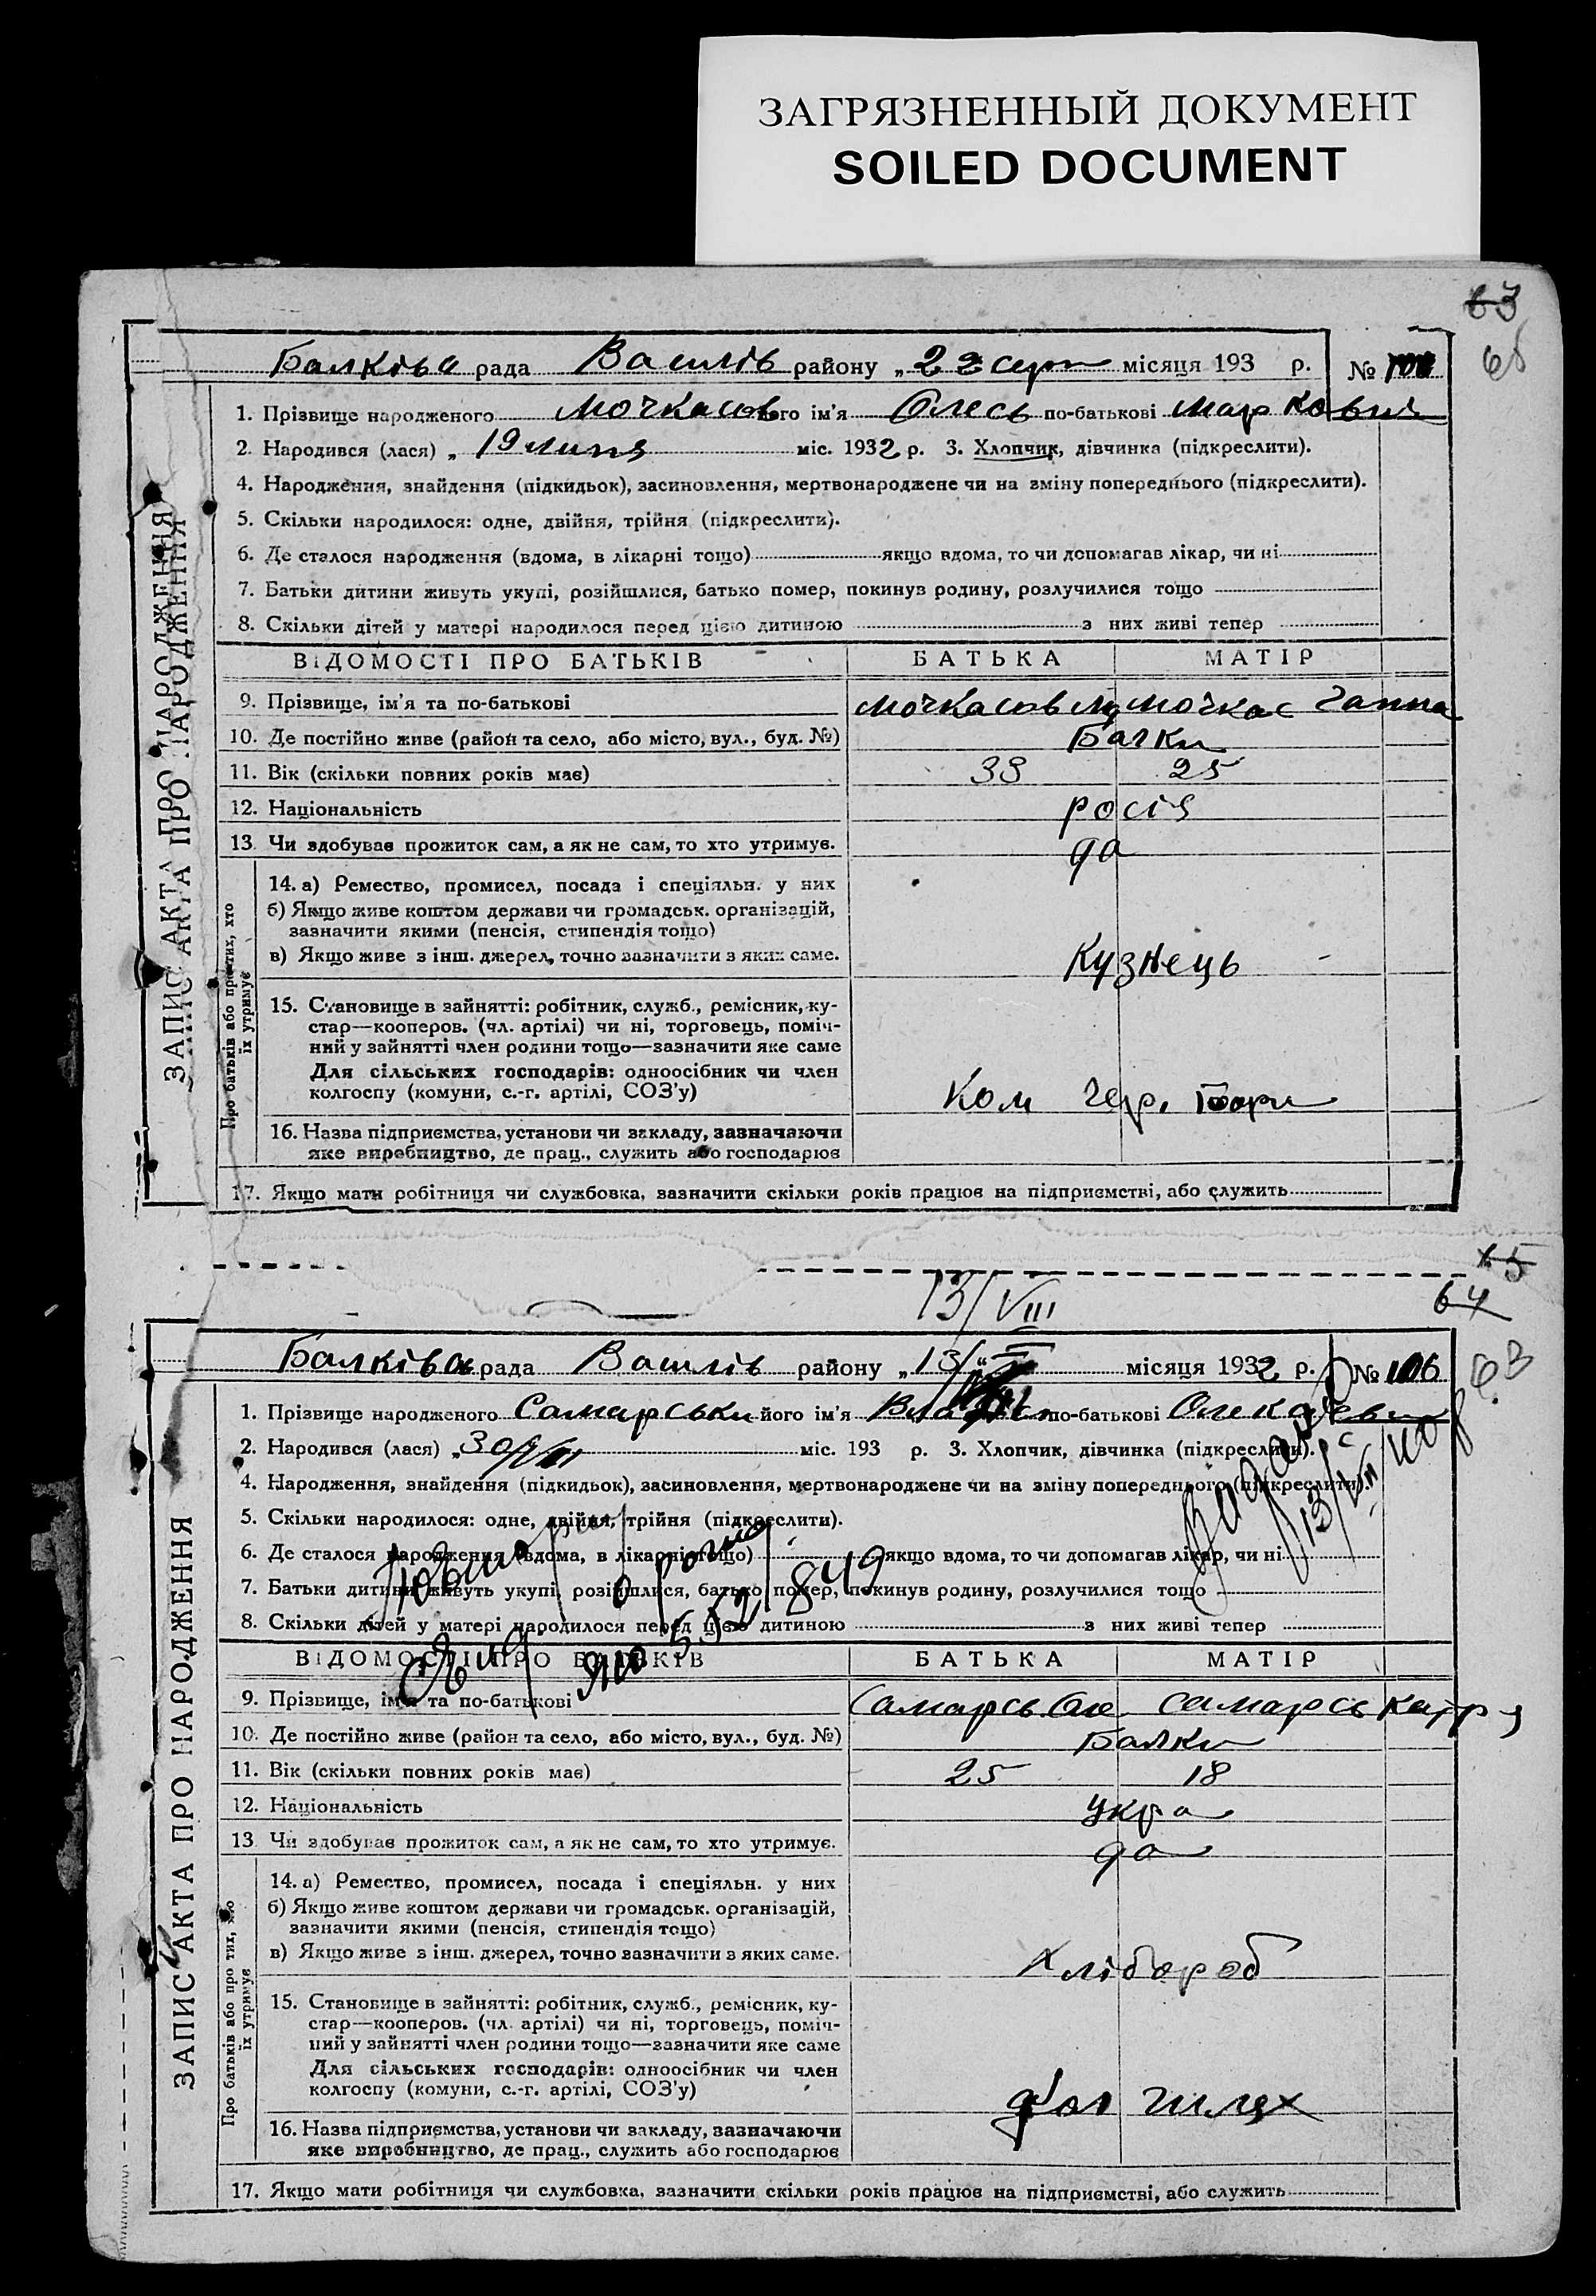 ЗАГРЯЗНЕННЫЙ ДОКУМЕНТ
SOILED DOCUMENT
63
Балківа рада Василів району „ 2 серп місяця 193 р. №
1. Прізвище народженого Мочкасов його ім'я Олесь по-батькові Маркович
2. Народився (лася) „ 19 липня міс. 1932 р. 3. Хлопчик, дівчинка (підкреслити).
4. Народження, знайдення (підкидьок), засиновлення, мертвонароджене чи на зміну попереднього (підкреслити).
5. Скільки народилося: одне, двійня, трійня (підкреслити).
6. Де сталося народження (вдома, в лікарні тощо) якщо вдома, то чи допомагав лікар, чи ні
7. Батьки дитини живуть укупі, розійшлися, батько помер, покинув родину, розлучилися тощо
8. Скільки дітей у матері народилося перед цією дитиною з них живі тепер
ВІДОМОСТІ ПРО БАТЬКІВ БАТЬКА МАТІР
9. Прізвище, ім'я та по-батькові Мочкасов Мочкас Ганна
10. Де постійно живе (район та село, або місто, вул., буд. №) Балки
11. Вік (скільки повних років має) 33 25
12. Національність росія
13. Чи здобуває прожиток сам, а як не сам, то хто утримує. да
14. а) Ремество, промисел, посада і спеціяльн. у них
б) Якщо живе коштом держави чи громадськ. організацій,
зазначити якими (пенсія, стипендія тощо)
в) Якщо живе з інш. джерел, точно зазначити з яких саме. Кузнець
15. Становище в зайнятті: робітник, служб., ремісник, ку-
стар—кооперов. (чл. артілі) чи ні, торговець, поміч-
ний у зайнятті член родини тощо—зазначити яке саме
Для сільських господарів: одноосібник чи член
колгоспу (комуни, с.-г. артілі, СОЗ'у) Ком Чер.
16. Назва підприємства, установи чи закладу, зазначаючи
яке виробництво, де прац., служить або господарює
17. Якщо мати робітниця чи службовка, зазначити скільки років працює на підприємстві, або служить
ЗАПИС АКТА ПРО НАРОДЖЕННЯ
ЗАПИС АКТА ПРО НАРОДЖЕННЯ
Про батьків або про тих, хто
їх утримує
13/VIII
64
Балківа рада Василів району „ 13/ місяця 1932 р. № 106
1. Прізвище народженого Самарськи його ім'я по-батькові
2. Народився (лася) „ 30/VII міс. 193 р. 3. Хлопчик, дівчинка (підкреслити).
4. Народження, знайдення (підкидьок), засиновлення, мертвонароджене чи на зміну попереднього (підкреслити).
5. Скільки народилося: одне, двійня, трійня (підкреслити).
6. Де сталося народження (вдома, в лікарні тощо) якщо вдома, то чи допомагав лікар, чи ні
7. Батьки дитини живуть укупі, розійшлися, батько помер, покинув родину, розлучилися тощо
8. Скільки дітей у матері народилося перед цією дитиною з них живі тепер
ВІДОМОСТІ ПРО БАТЬКІВ БАТЬКА МАТІР
9. Прізвище, ім'я та по-батькові Самарсь Оле Самарсь Катря
10. Де постійно живе (район та село, або місто, вул., буд. №) Балки
11. Вік (скільки повних років має) 25 18
12. Національність укра
13. Чи здобуває прожиток сам, а як не сам, то хто утримує. да
14. а) Ремество, промисел, посада і спеціяльн. у них
б) Якщо живе коштом держави чи громадськ. організацій,
зазначити якими (пенсія, стипендія тощо)
в) Якщо живе з інш. джерел, точно зазначити з яких саме. Хлібороб
15. Становище в зайнятті: робітник, служб., ремісник, ку-
стар—кооперов. (чл. артілі) чи ні, торговець, поміч-
ний у зайнятті член родини тощо—зазначити яке саме
Для сільських господарів: одноосібник чи член
колгоспу (комуни, с.-г. артілі, СОЗ'у) шлях
16. Назва підприємства, установи чи закладу, зазначаючи
яке виробництво, де прац., служить або господарює
17. Якщо мати робітниця чи службовка, зазначити скільки років працює на підприємстві, або служить
ЗАПИС АКТА ПРО НАРОДЖЕННЯ
Про батьків або про тих, хто
їх утримує